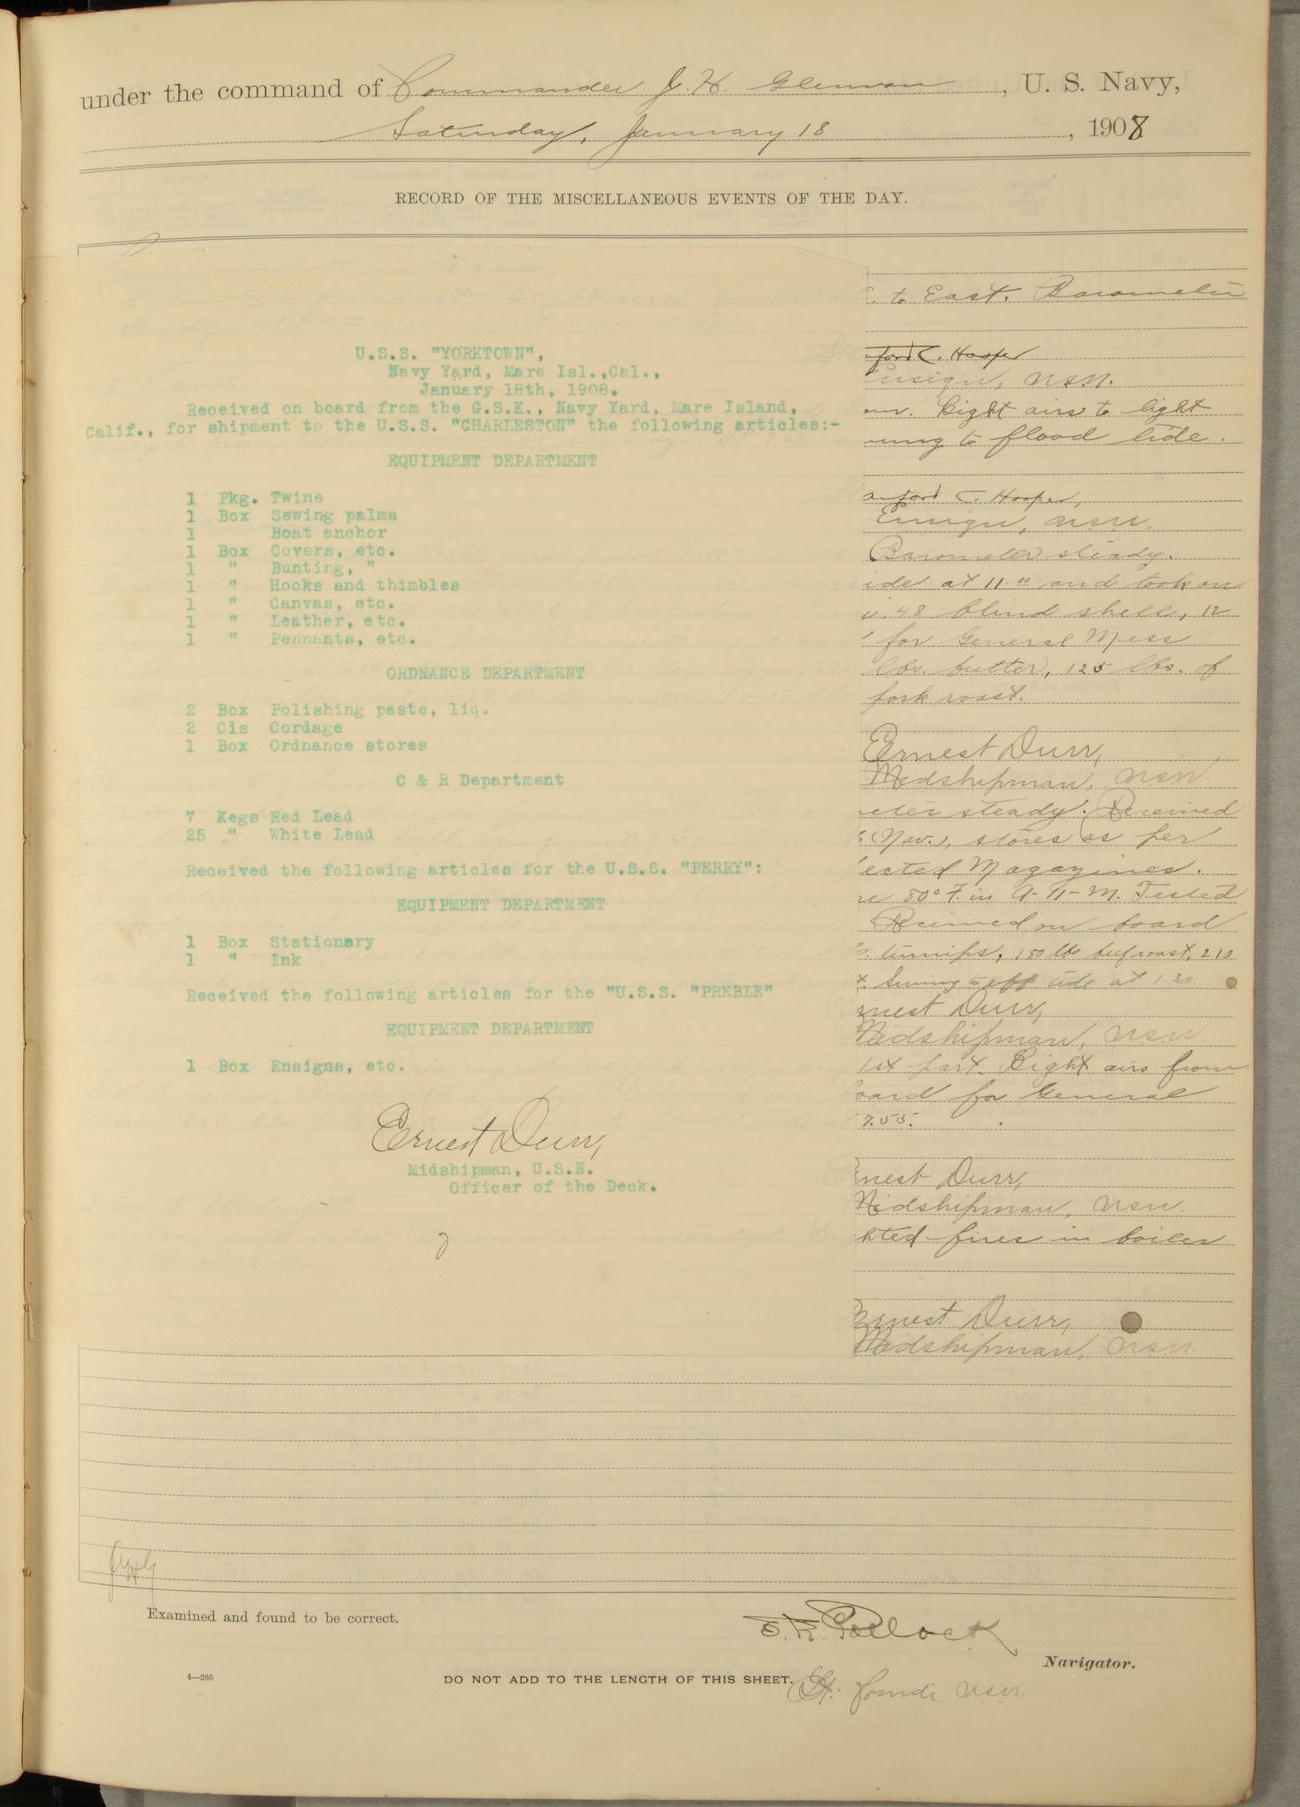 under the command of Commander J. H. Glennon, U. S. Navy,
Saturday, January 18, 1908
RECORD OF THE MISCELLANEOUS EVENTS OF THE DAY.
to East. Barometer
U.S.S. "YORKTOWN",
Navy Yard, Mare Isl.,Cal.,
January 18th, 1908.
Received on board from the G.S.K., Navy Yard, Mare Island,
Calif., for shipment to the U.S.S. "CHARLESTON" the following articles:-
EQUIPMENT DEPARTMENT
1 Pkg. Twine
1 Box Sewing palms
1 Boat anchor
1 Box Covers, etc.
1 " Bunting, "
1 " Hooks and thimbles
1 " Canvas, etc.
1 " Leather, etc.
1 " Pennants, etc.
ORDNANCE DEPARTMENT
2 Box Polishing paste, liq.
2 Cls Cordage
1 Box Ordnance stores
C & R Department
7 Kegs Red Lead
25 " White Lead
Received the following articles for the U.S.S. "PERRY":
EQUIPMENT DEPARTMENT
1 Box Stationary
1 " Ink
Received the following articles for the "U.S.S. "PREBLE"
EQUIPMENT DEPARTMENT
1 Box Ensigns, etc.
Ernest Durr,
Midshipman, U.S.N.
Officer of the Deck.
ford C. Hooper
Ensign, USN.
Light airs to light
to flood tide.
anford C. Hooper,
Ensign, USN.
Barometer steady.
ide at 11.00 and took on
48 blind shell, 12
for General Mess
lbs. butter, 125 lbs. of
pork roast.
Ernest Durr,
Midshipman, USN.
eter steady. Received
(Nav.), stores as per
ected Magazines.
80° F. in A-11-M. Tested
Received on board
turnips, 150 lbs beef roast, 210
Swung to ebb tide at 1.20
rnest Durr,
Midshipman, USN
1st part. Light airs from
oard for General
7.55.
nest Durr,
Midshipman, USN.
hted fires in boiler
Ernest Durr,
Midshipman, USN.
JHG
Examined and found to be correct.
E. K. Pollock
Navigator.
4—265
DO NOT ADD TO THE LENGTH OF THIS SHEET.
Lt. Comdr. USN.